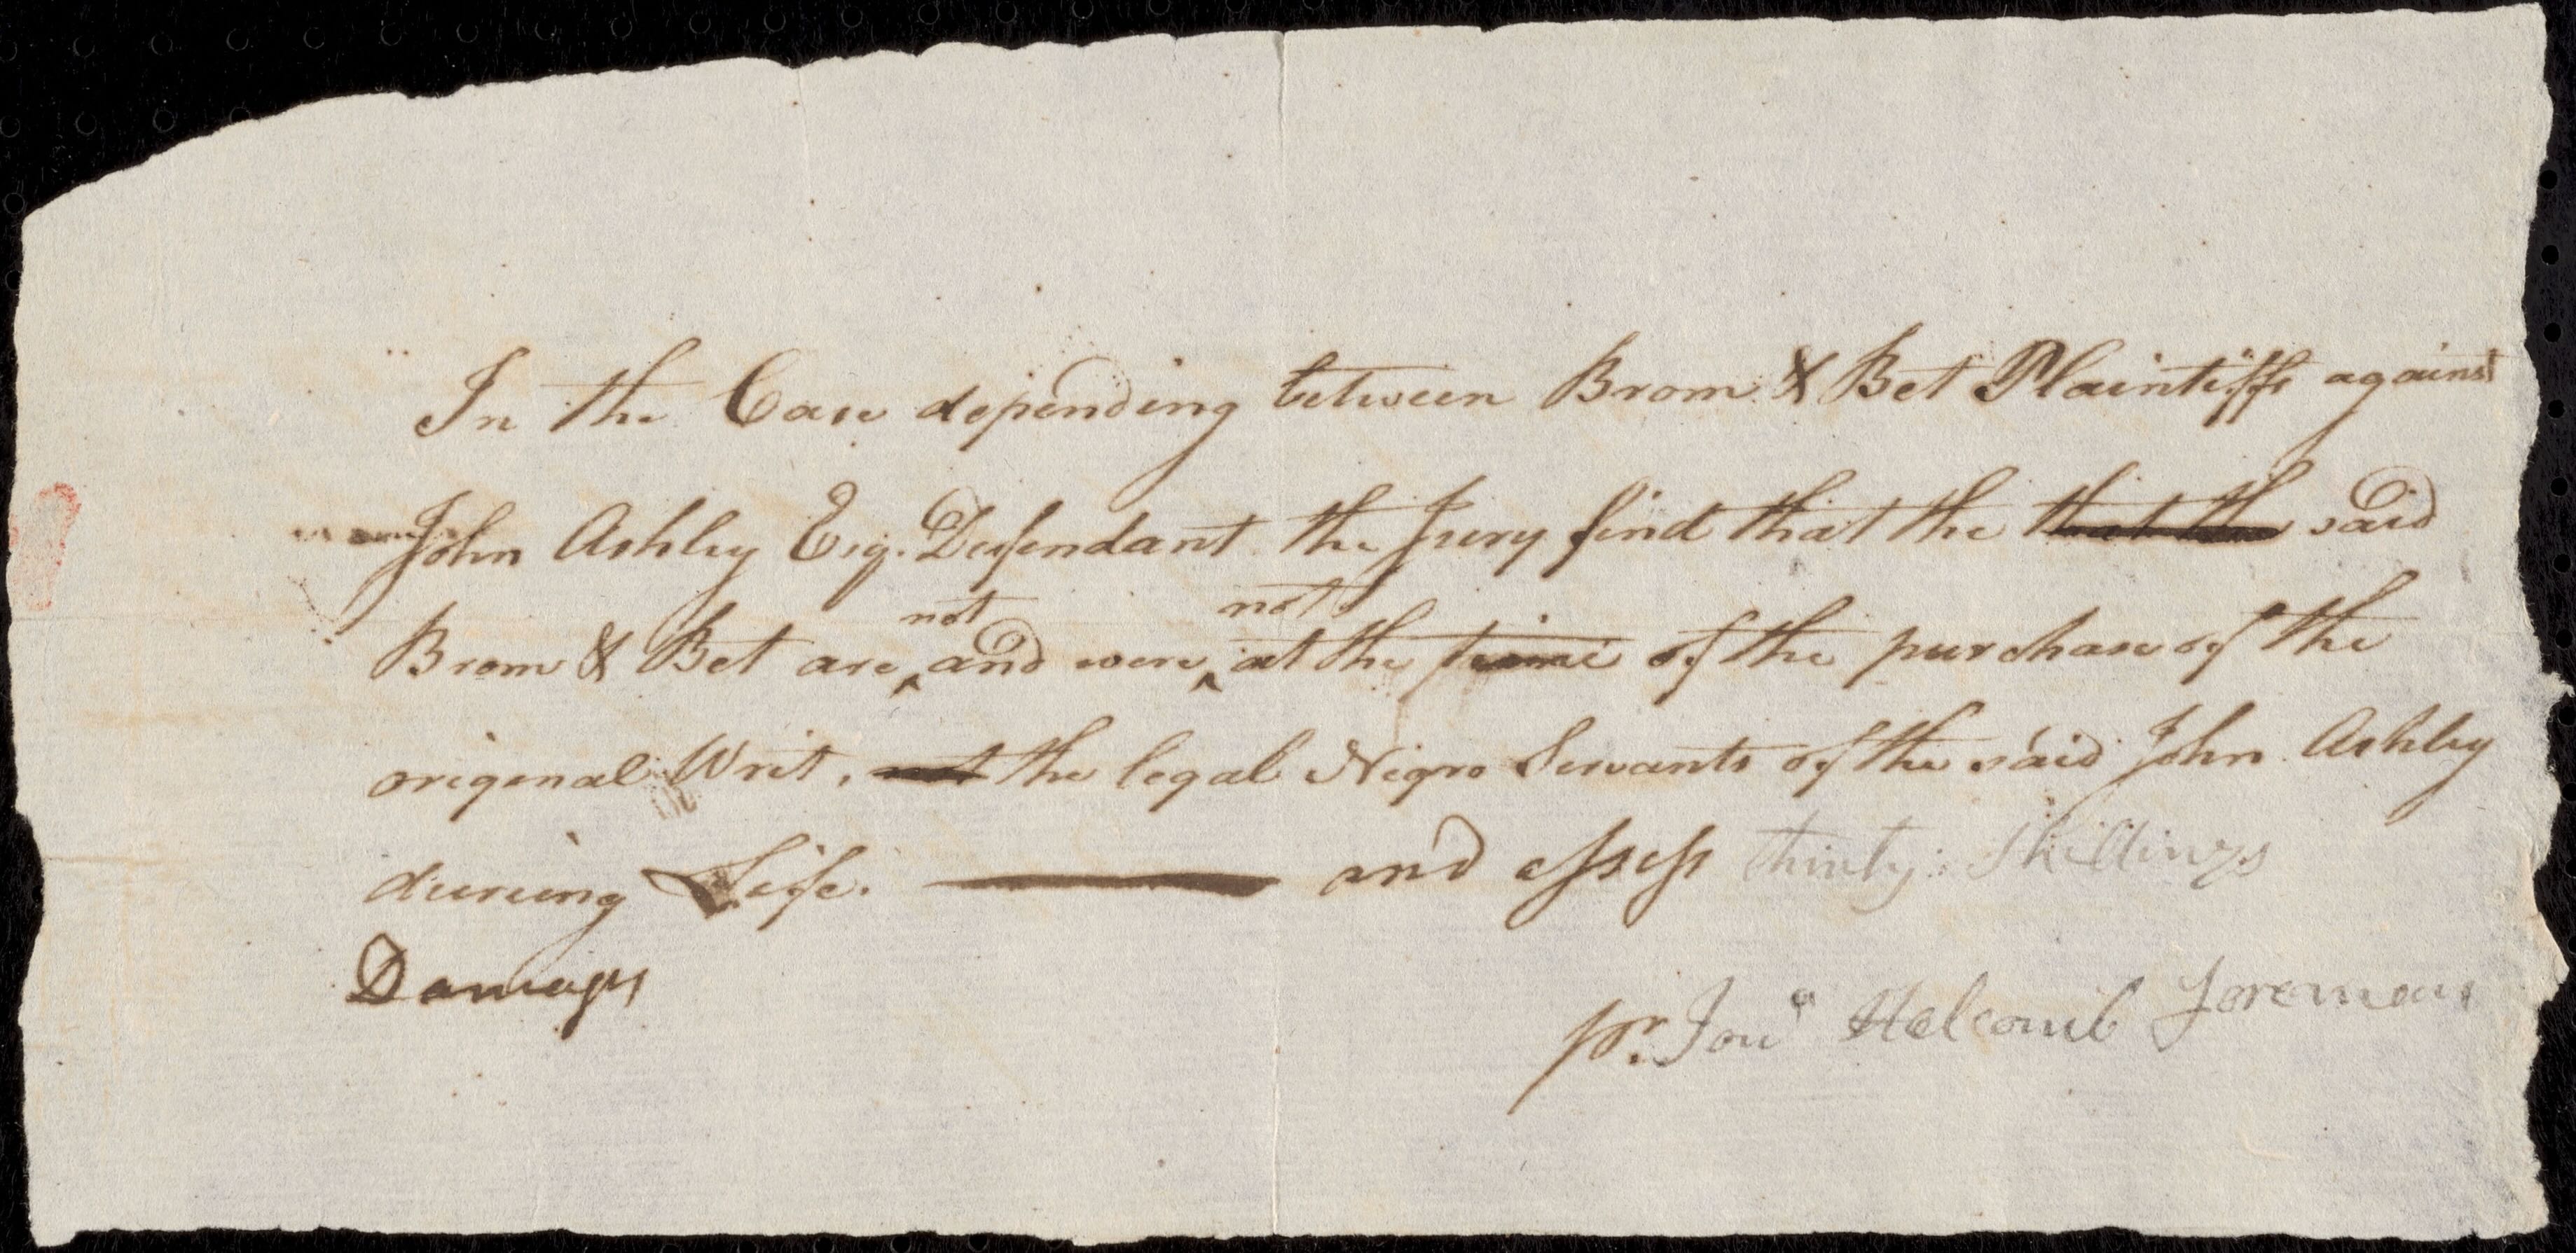 In the Case depending between Brom & Bet Plaintiffs against
John Ashley Esq. Defendant the Jury find that the that the said
not not
Brom & Bet are and were at the time of the purchase of the
original Writ, not the legal Negro Servants of the said John Ashley
during Life. and assess thirty Shillings
Damages
pr. Jona Holcomb Foreman